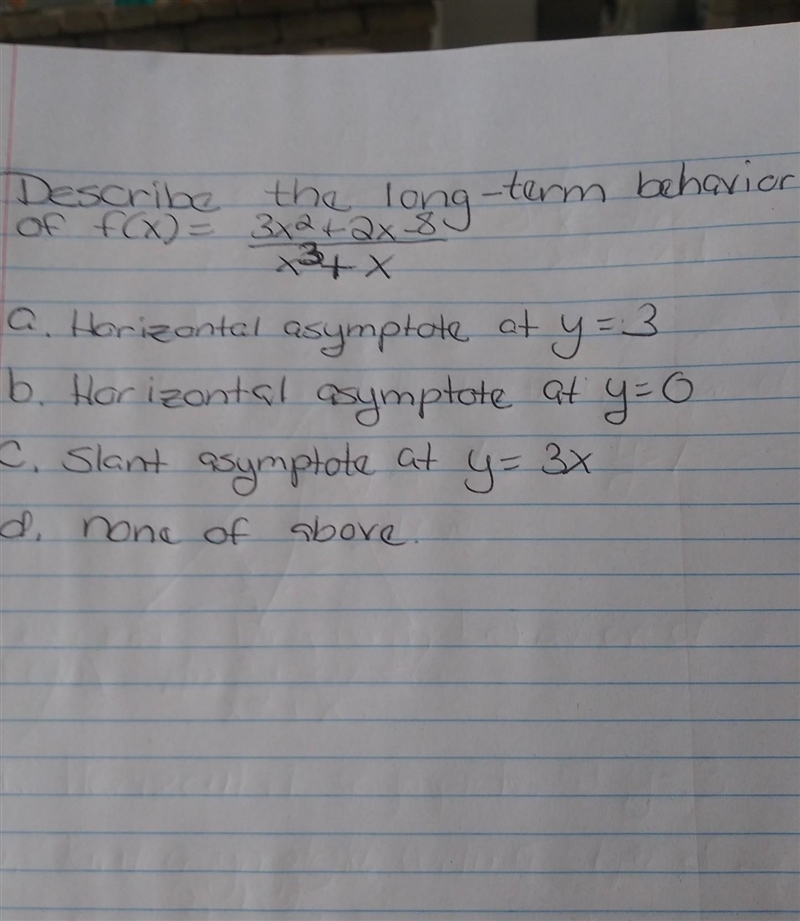 Describe the long-term behavior
of f(x) = 3x²+2x-8
x³+x
a. Horizontal asymptote at y=3
b. Horizontal asymptote at y=0
c. Slant asymptote at y= 3x
d. none of above.